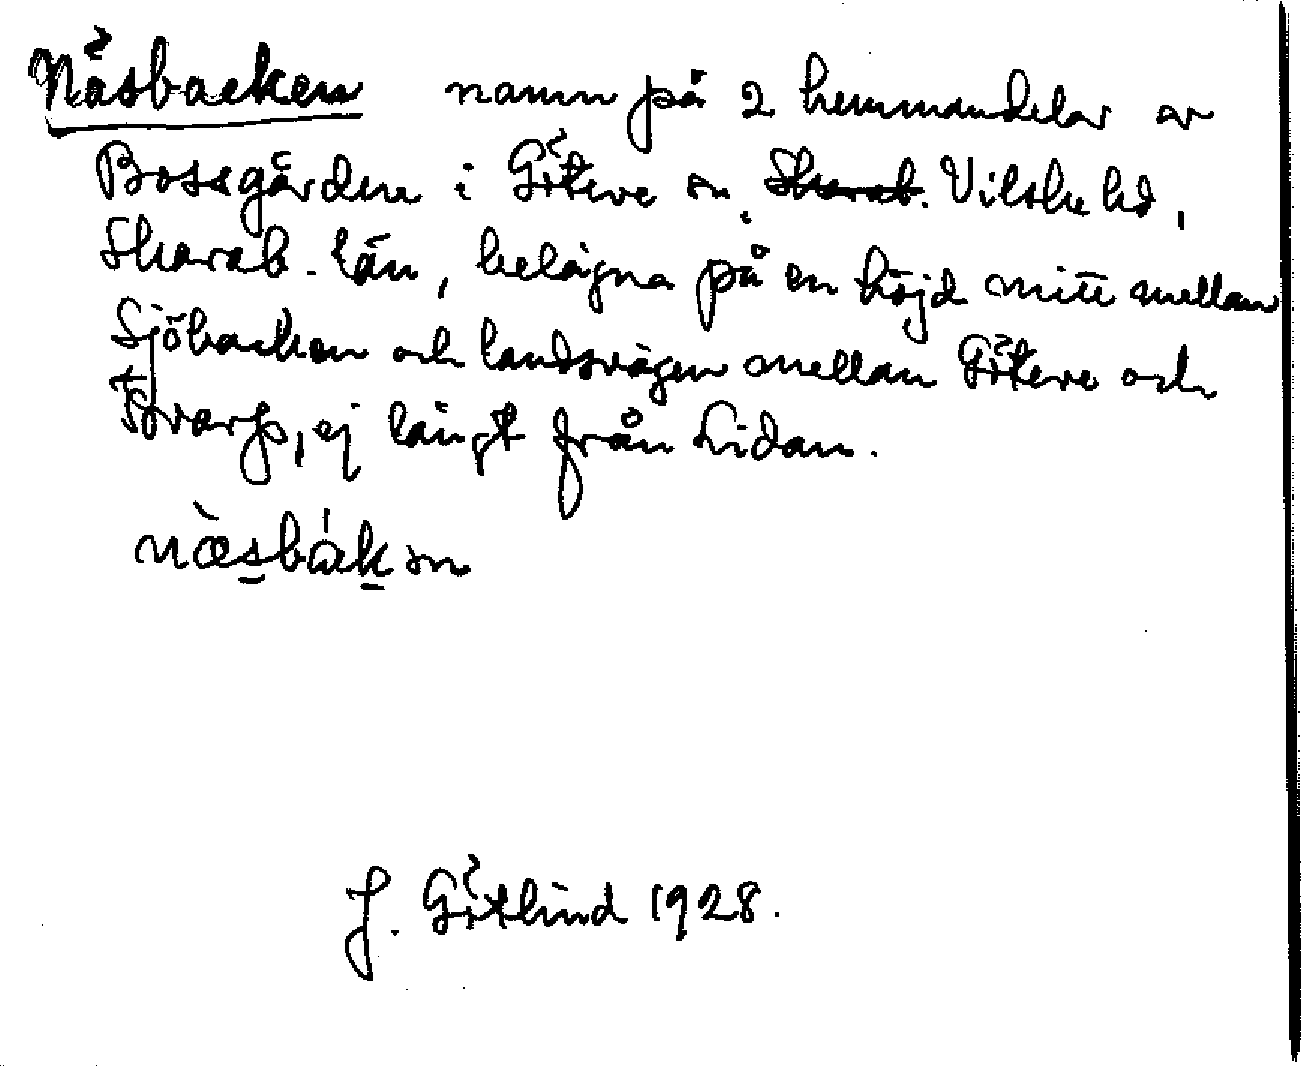 Näsbacken namn på 2 hemmandelar av
Bossgården i Göteve sn, Skarab. Vilske hd,
Skarab. län, belägna på en höjd mitt mellan
Sjöbacken och landsvägen mellan Göteve och
Torvarp, ej långt från Lidan.
næ̀sbákən
J. Götlind 1928.